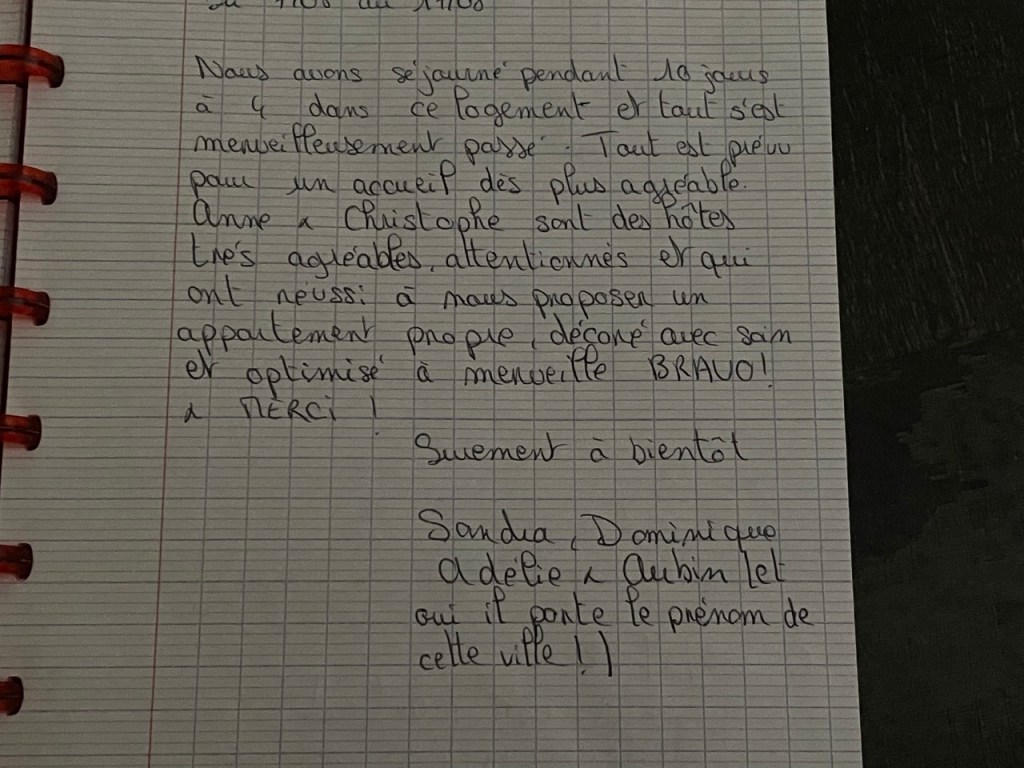 Nous avons séjourné pendant 10 jours
à 4 dans ce logement et tout s'est
merveilleusement passé. Tout est prévu
pour un accueil dès plus agréable.
Anne & Christophe sont des hôtes
très agréables, attentionnés et qui
ont réussi à nous proposer un
appartement propre, décoré avec soin
et optimisé à merveille BRAVO!
& MERCI !
Surement à bientôt
Sandra, Dominique
Adélie & Aubin (et
oui il porte le prénom de
cette ville !)